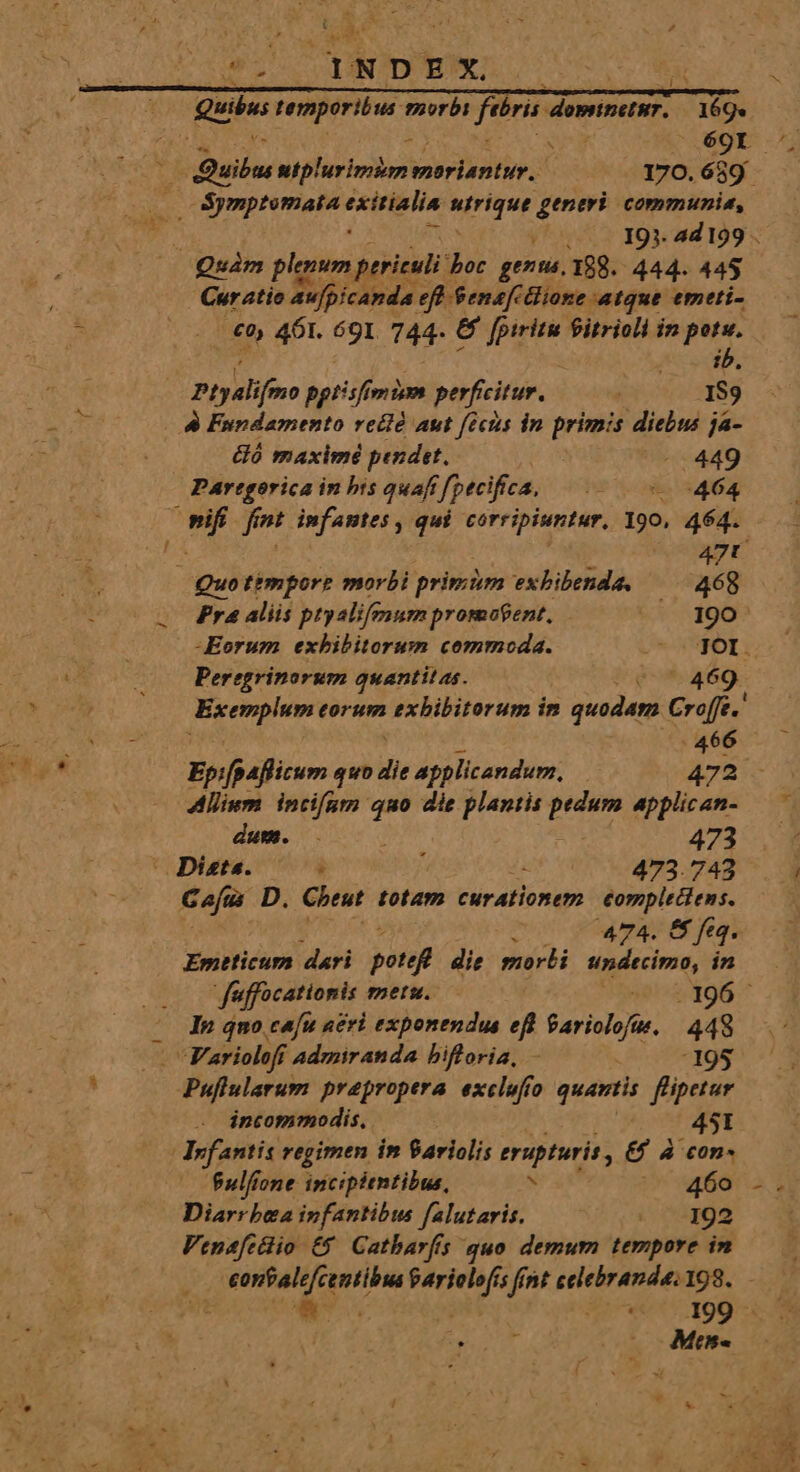 INDEX.
Quibus temporibus morbi febris dominetur. 169.
691
Quibus utplurimùm moriantur. 170. 689
Symptomata exitialia utrique generi communia,
193. ad 199
Quàm plenum periculi hoc genus, 188. 444. 445
Curatio auſpicanda eſt venaſectione atque emeti-
co, 461. 691 744. & ſpiritu vitrioli in potu.
ib.
Ptyaliſmo pptisſimùm perficitur. 189
à Fundamento rectè aut ſecùs in primis diebus ja-
ctó maximè pendet. 449
Paregorica in his quaſi ſpecifica, 464
niſi ſint infantes, qui corripiuntur, 190, 464.
471
Quo tempore morbi primùm exhibenda. 468
Præ aliis ptyaliſmum promovent, 190
Eorum exhibitorum commoda. 101.
Peregrinorum quantitas. 469
Exemplum eorum exhibitorum in quodam Croſſe.
466
Epiſpaſticum quo die applicandum, 472
Allium inciſum quo die plantis pedum applican-
dum. 473
Diæta. 473. 743
Caſus D. Cheut totam curationem complectens.
474. & ſeq.
Emeticum dari poteſt die morbi undecimo, in
ſuffocationis metu. 196
In quo caſu aëri exponendus eſt varioloſus. 448
Varioloſi admiranda hiſtoria, 195
Puſtularum præpropera excluſio quantis ſtipetur
incommodis, 451
Infantis regimen in variolis erupturis, & à con-
vulſione incipientibus, 460
Diarrhœa infantibus ſalutaris. 192
Venaſectio & Catharſis quo demum tempore in
convaleſcentibus varioloſis ſint celebrandæ. 198.
199
Men-